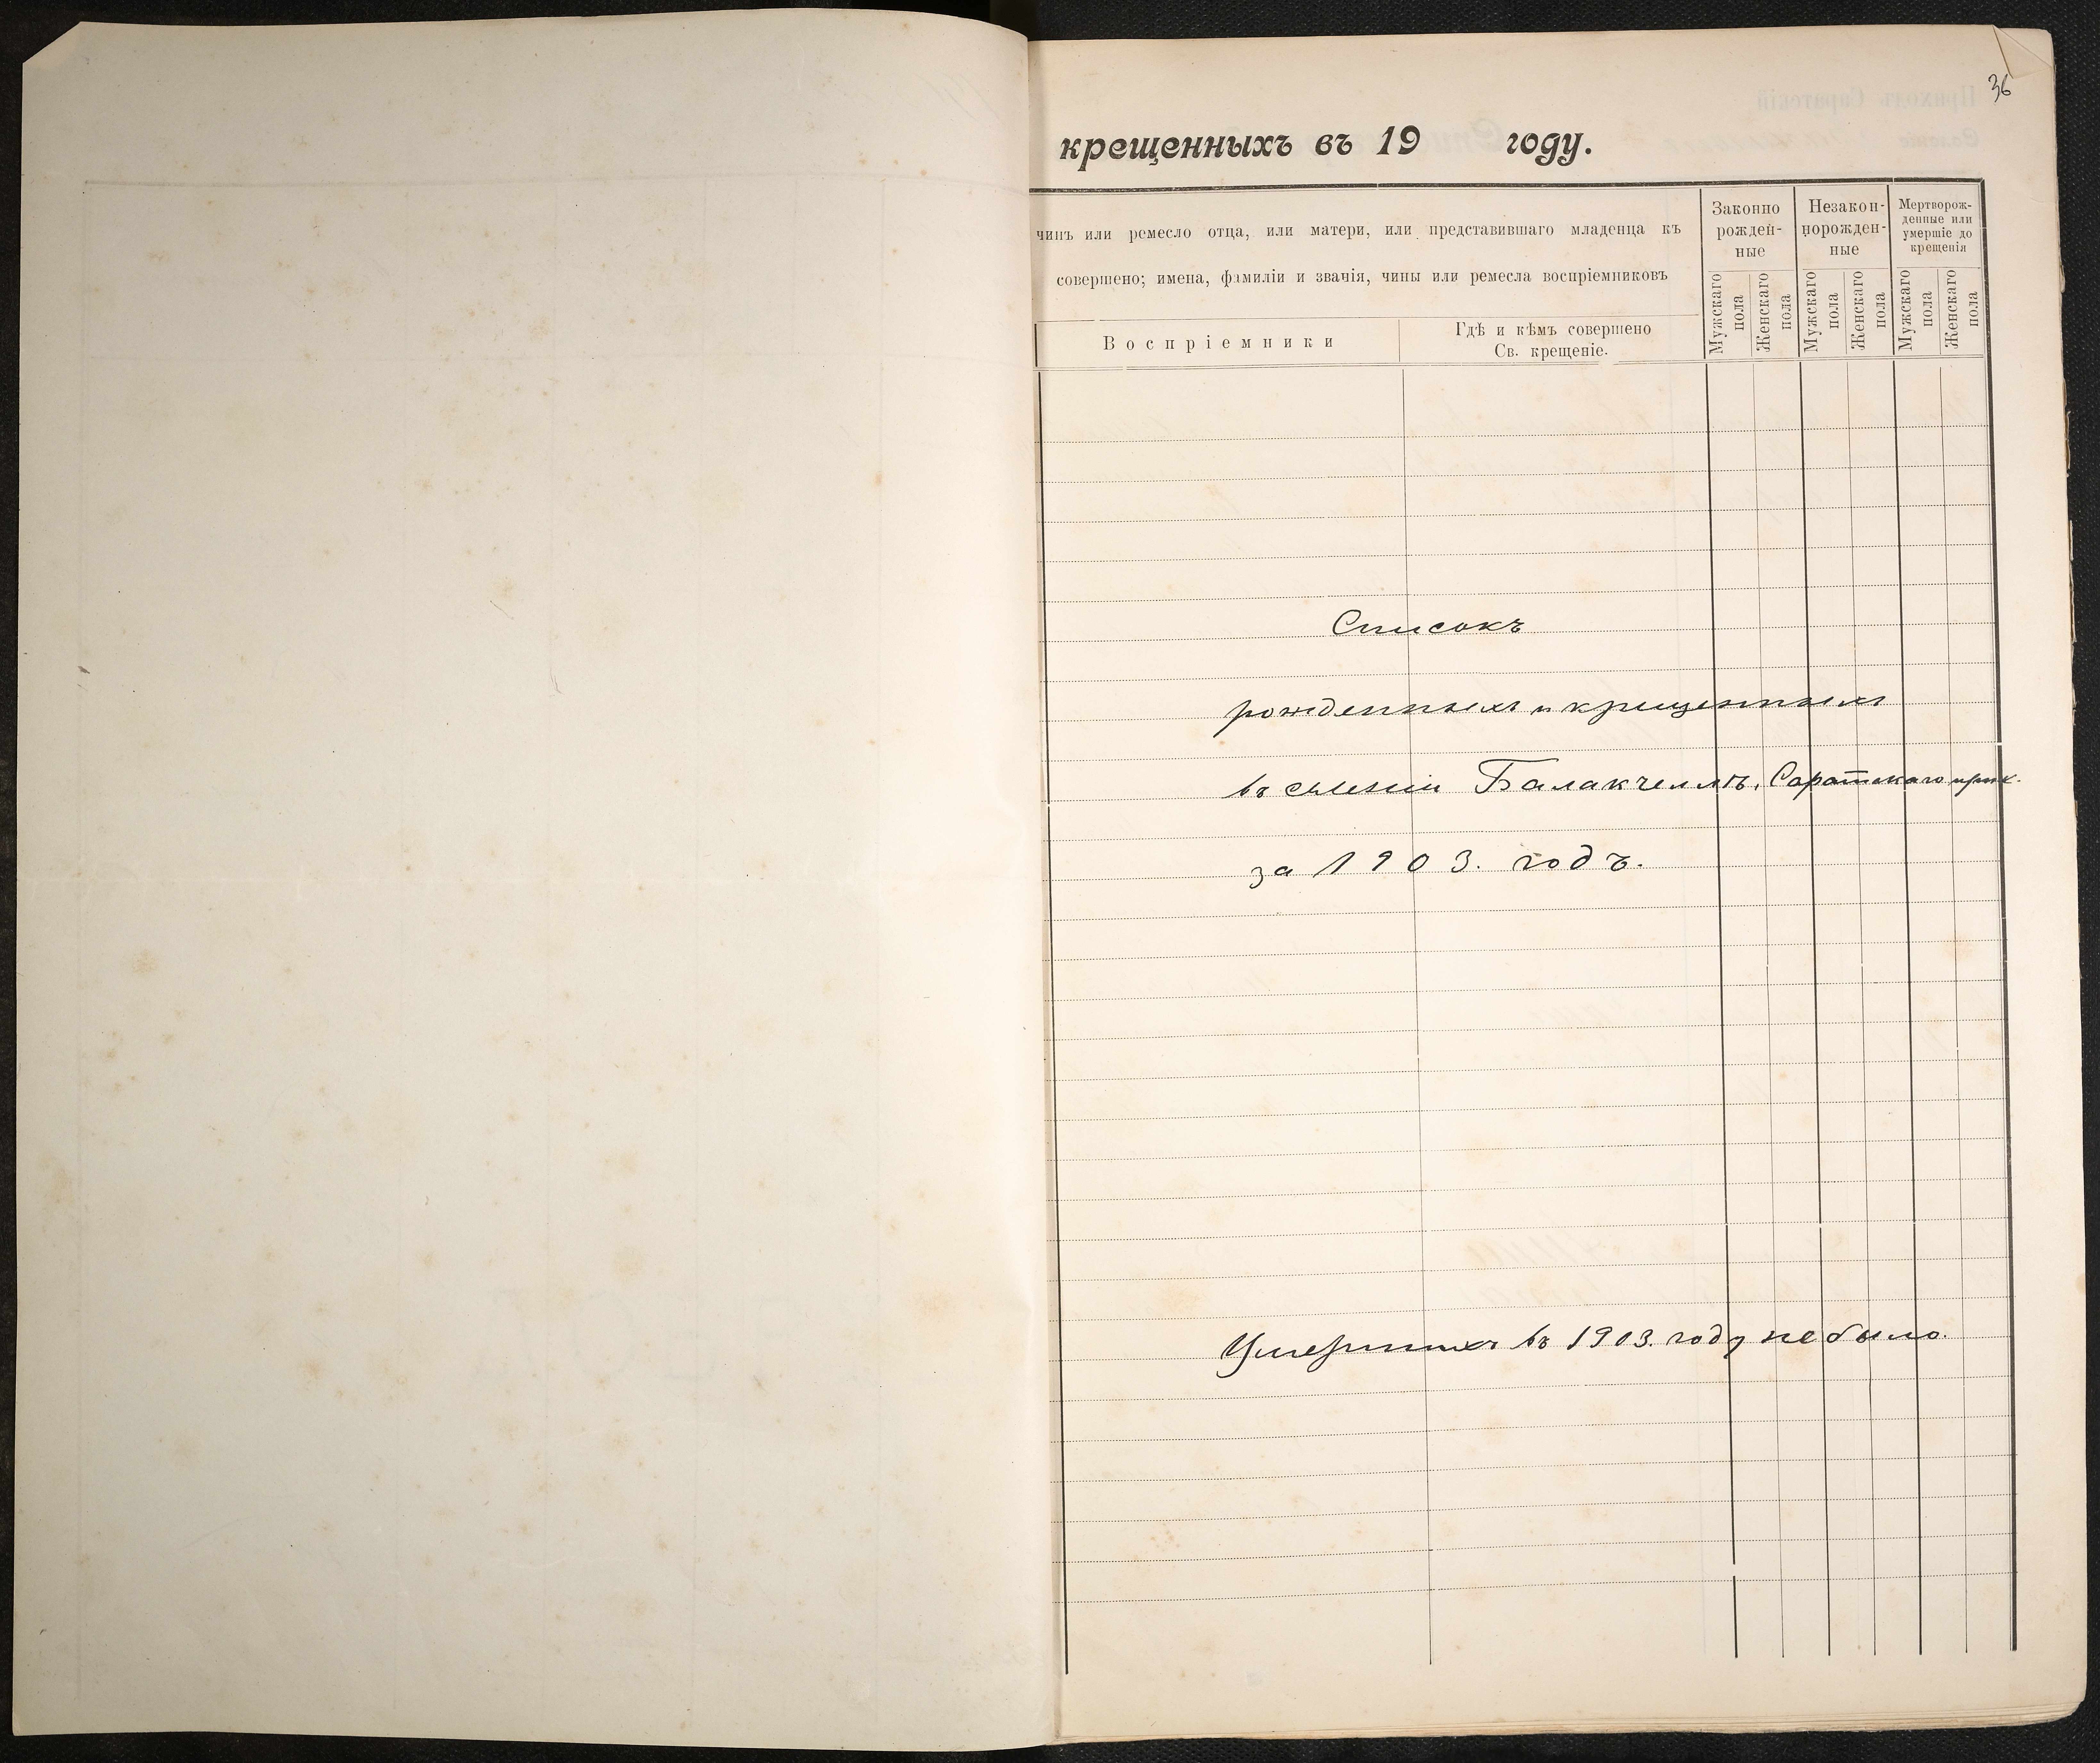 36
крещенныхъ въ 19 году.
чинъ или ремесло отца, или матери, или представившаго младенца къ
совершено; имена, фамиліи и званія, чины или ремесла воспріемниковъ
Воспріемники
Гдѣ и кѣмъ совершено
Св. крещеніе.
Законно
рожден-
ные
Незакон-
норожден-
ные
Мертворож-
денные или
умершіе до
крещенія
Мужскаго
пола
Женскаго
пола
Мужскаго
пола
Женскаго
пола
Мужскаго
пола
Женскаго
пола
Списокъ
рожденныхъ и крещенныхъ
въ селеніи Балакчелмъ, Саратскаго прих.
за 1903. годъ.
Умершихъ въ 1903. году не было.